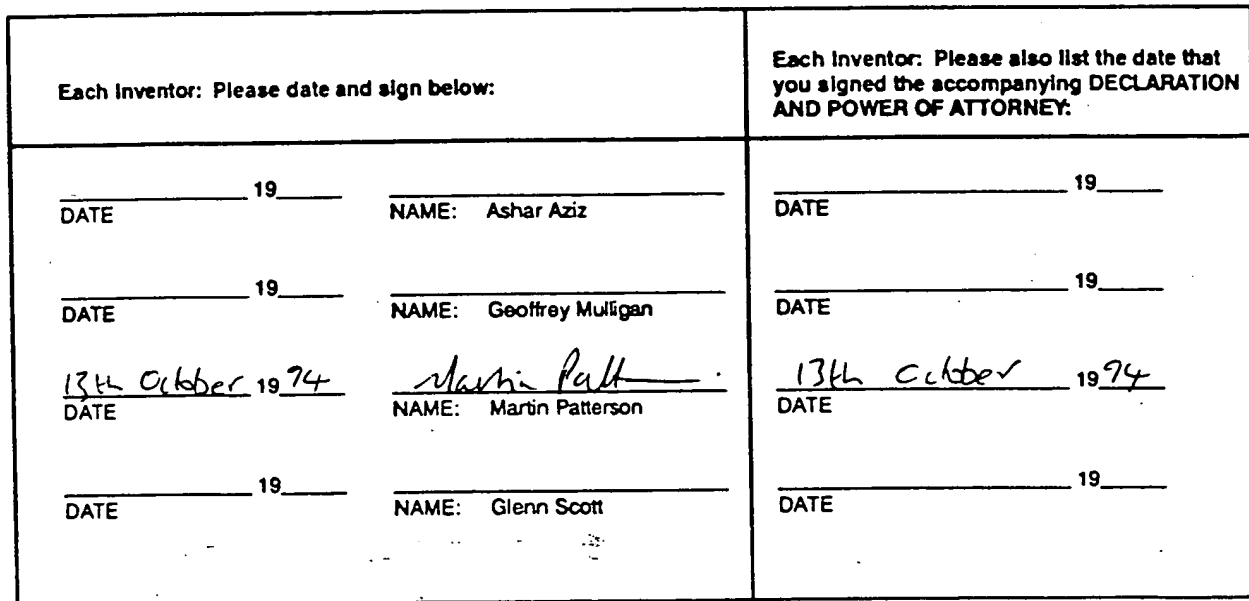 Each Inventor: Please date and sign below:
Each Inventor: Please also list the date that
you signed the accompanying DECLARATION
AND POWER OF ATTORNEY:
19
19
DATE
NAME: Ashar Aziz
DATE
19
19
DATE
NAME: Geoffrey Mulligan
DATE
13th October 1994 Martin Patt 13th October 1994
DATE
NAME: Martin Patterson
DATE
19
19
DATE
NAME: Glenn Scott
DATE